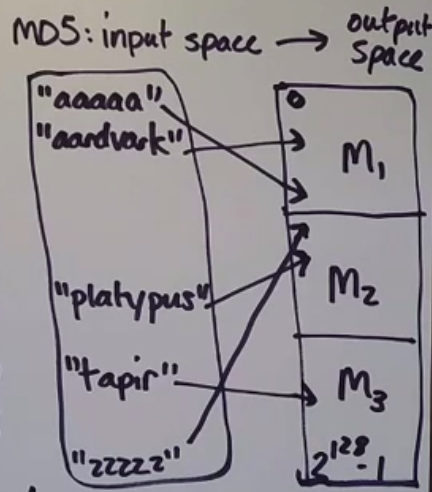 MD5: input space → output space
"aaaaa"
"aardvark"
"platypus"
"tapir"
"zzzzz"
0
M₁
M₂
M₃
2¹²⁸-1